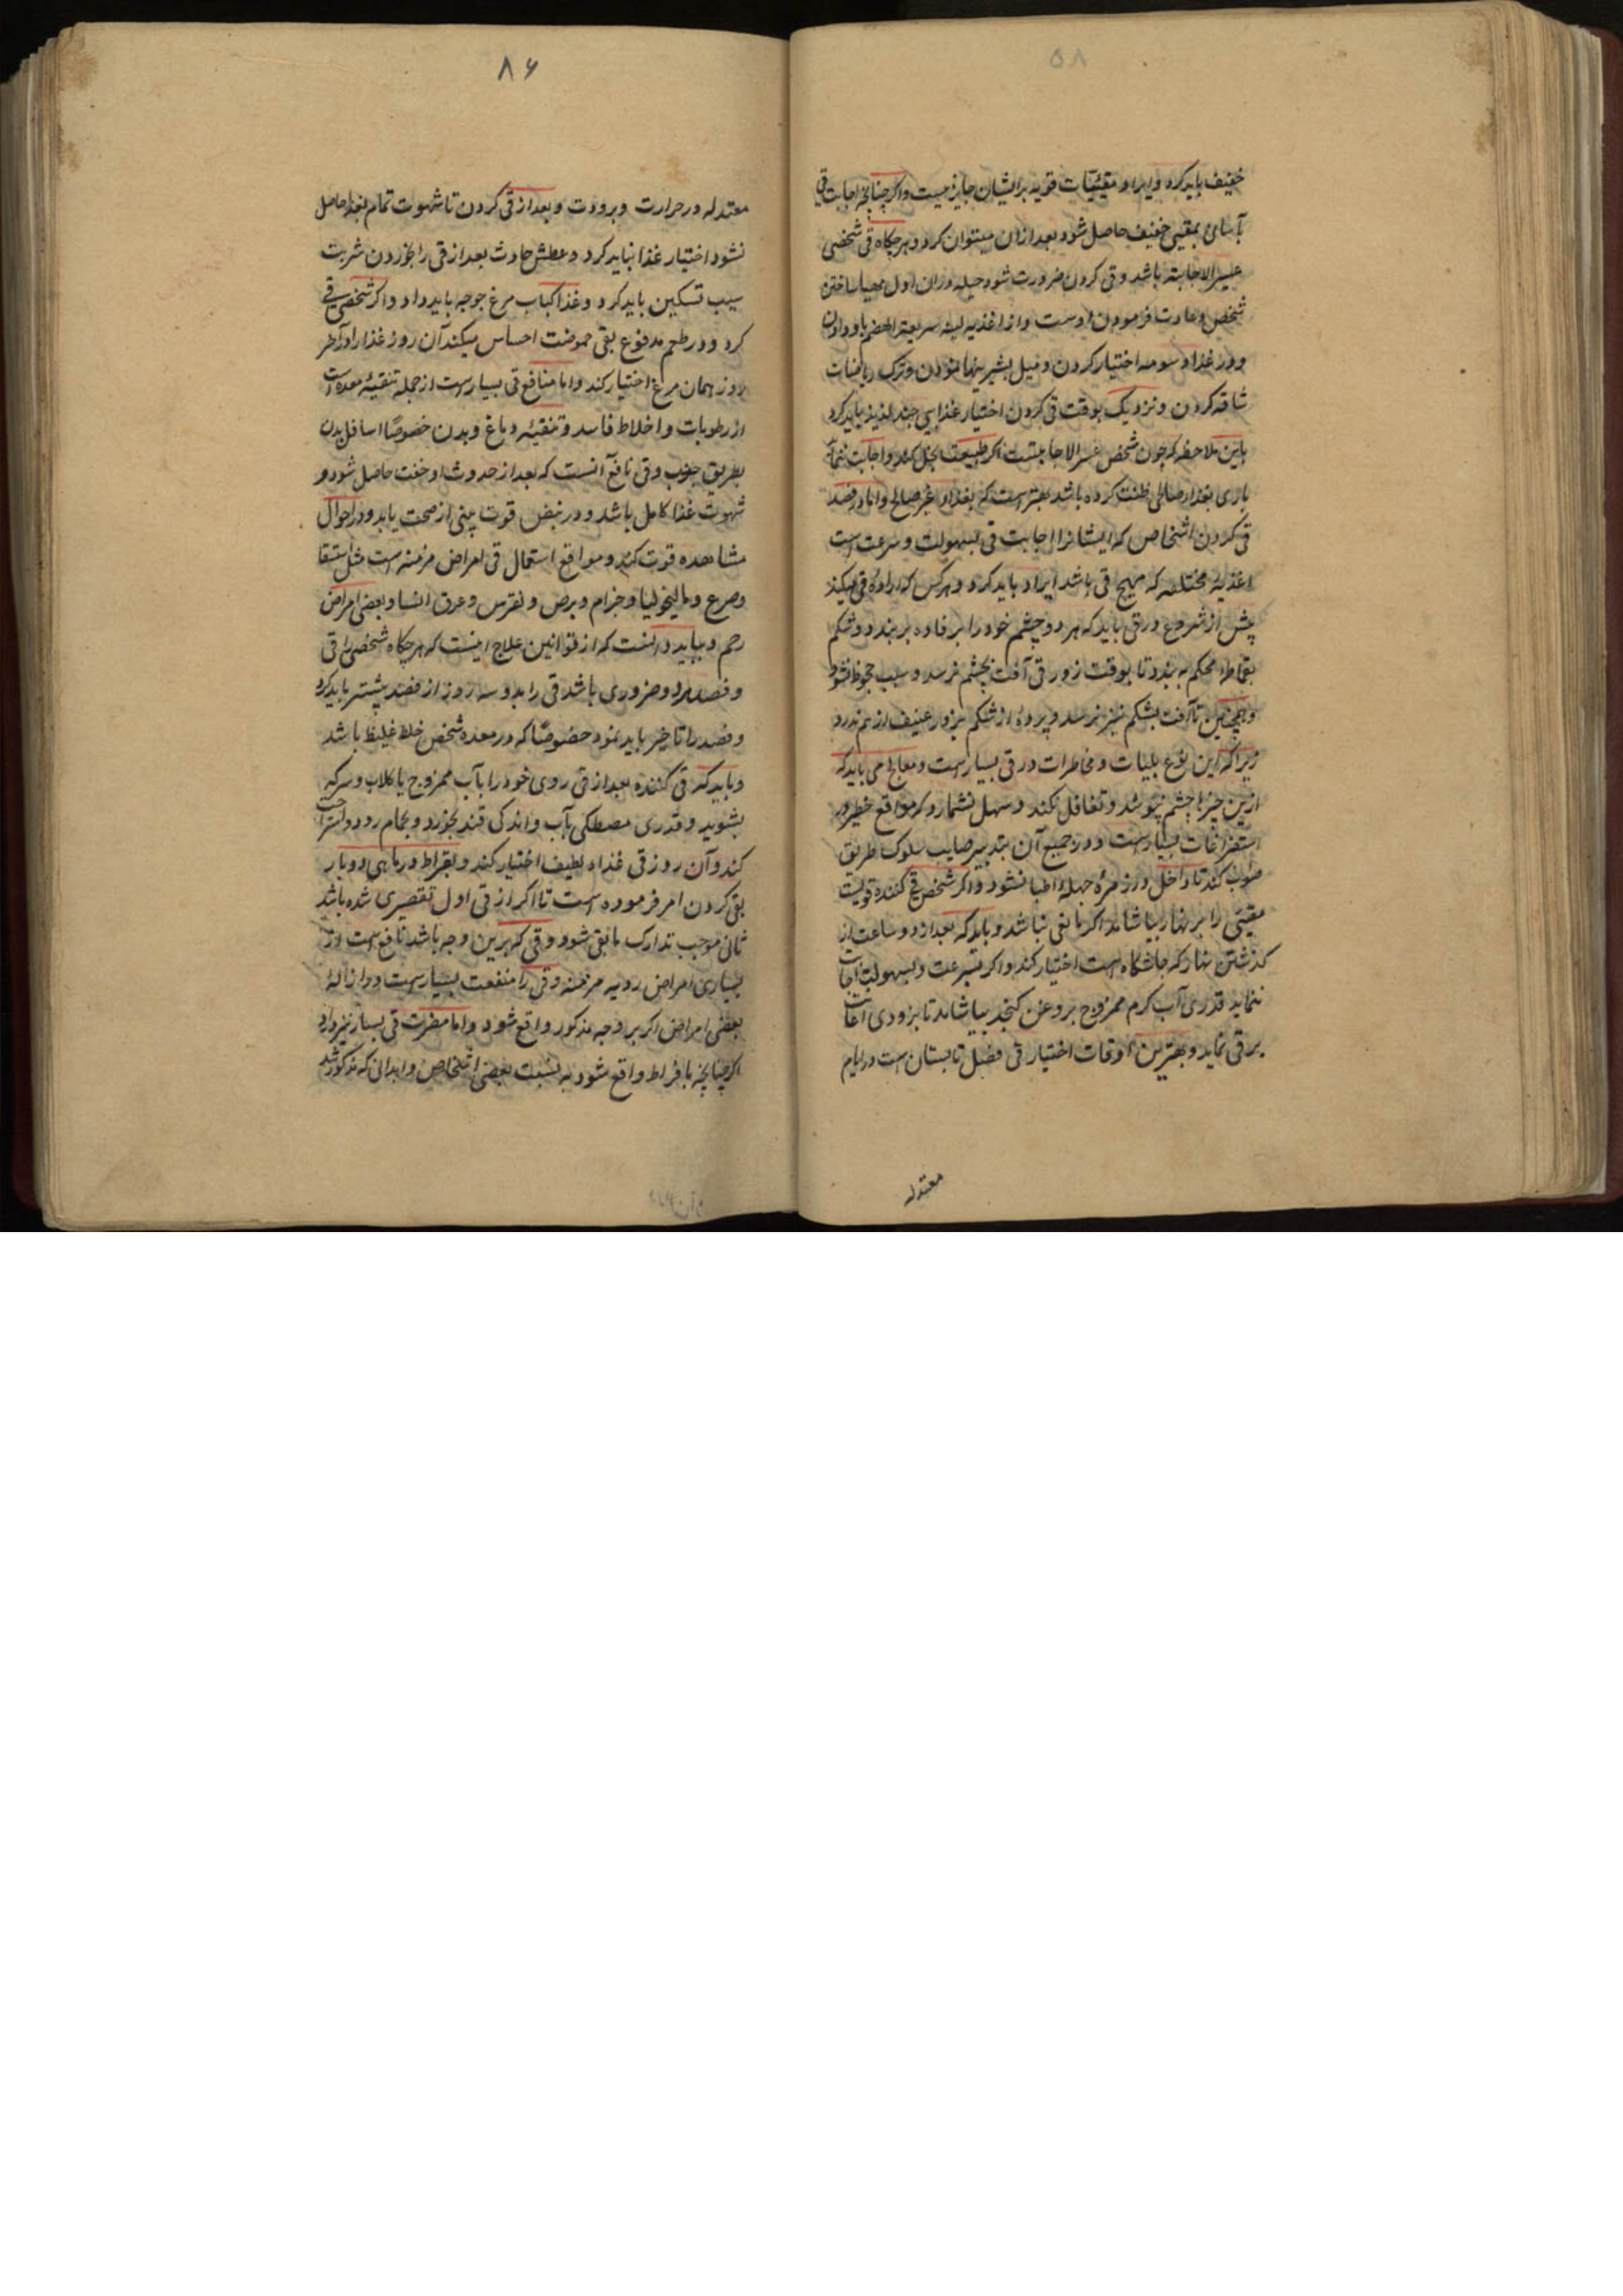 ۵۸
خفیف باید کرد و ایراد مقیئیات قویه برایشان جایز نیست و اگر چنانچه اجابت قی
بآسانی بمقیی خفیف حاصل شود بعد ازان میتوان کرد و هرچکاه قی شخصی
عسیر الاجابته باشد و قی کردن ضرورت شود حیله دران اول مهیا ساختن
شخص و عادت فرمودن اوست و از اغذیه لینه سریعة الهضم باو دادن
و در غذا دسومه اختیار کردن و میل بشیرینها نمودن و ترک ریاضات
شاقه کردن و نزدیک بوقت قی کردن اختیار غذایی چند لذیذ باید کرد
باین ملاحظه که چون شخص عسر الاجابتست اگر طبیعت بخل کند و اجابت ننماید
باری بغذاء صالح ظنت کرده باشد بهتر است که بغذاء غیر صالح و اما در قصد
قی کردن اشخاص که ایشانرا اجابت قی بسهولت و سرعت است
اغذیهٔ مختلفه که مهیج قی باشد ایراد باید کرد و هرکس که ارادهٔ قی میکند
پیش از شروع در قی باید که هر دو چشم خود را برفاده بربندد و شکم
بقماط محکم به بندد تا بوقت زور قی آفت بچشم نرسد و سبب جحوظ نشود
و همچنین تا آفت بشکم نیز نرسد و پردهٔ از شکم بزور عنیف از هم ندرد
زیرا که این نوع بلیات و مخاطرات در قی بسیار است و معالج می باید که
ازین چیزها چشم نپوشد و تغافل نکند و سهل نشمارد که مواقع خطر در
استفراغات بسیار است و در جمیع آن بتدبیر صایب سلوک طریق
صواب کند تا داخل در زمرهٔ جهلهٔ اطبا نشود و اگر شخص قی کننده قویست
مقیئی را بر نهار بیاشامد اگر مانعی نباشد و باید که بعد از دو ساعت از
گذشتن نهار که چاشتگاه است اختیار کند و اگر بسرعت و بسهولت اجابت
ننماید قدری آب گرم ممزوج بروغن کنجد بیاشامد تا بزودی اعانت
بر قی نماید و بهترین اوقات اختیار قی فصل تابستان است در ایام
معتدله
۸۶
معتدله در حرارت و برودت و بعد از قی کردن تا شهوت تمام بغذا حاصل
نشود اختیار غذا نباید کرد و عطش حادث بعد از قی را بخوردن شربت
سیب تسکین باید کرد و غذا کباب مرغ جوجه باید داد و اگر شخصی قی
کرد و در طعم مدفوع بقی حموضت احساس میکند آن روز غذا را و آخر
روز همان مرغ اختیار کند و اما منافع قی بسیار است از جمله تنقیهٔ معده است
از رطوبات و اخلاط فاسد و تنقیهٔ دماغ و بدن خصوصًا اسافل بدن
بطریق جذب و قی نافع آنست که بعد از حدوث او خفت حاصل شود و
شهوت غذا کامل باشد و در نبض قوت بینی از صحت یابد و در احوال
مشاهده قوت کند و مواقع استعمال قی امراض مزمنه است مثل استسقا
و صرع و مالیخولیا و جذام و برص و نقرس و عرق النسا و بعضی امراض
رحم و بباید دانست که از قوانین علاج اینست که هرچکاه شخصی را قی
و فصد هردو ضروری باشد قی را بدو سه روز از فصد پیشتر باید کرد
و فصد را تاخیر باید نمود خصوصًا که در معده شخص خلط غلیظ باشد
و باید که قی کننده بعد از قی روی خود را بآب ممزوج یا گلاب و سرکه
بشوید و قدری مصطکی بآب و اندک قند بخورد و بحمام رود و استراحت
کند و آن روز قی غذاء لطیف اختیار کند و بقراط در ماهی دوبار
بقی کردن امر فرموده است تا اگر از قی اول تقصیری شده باشد
ثانی موجب تدارک مابقی شود و قی که برین وجه باشد نافع است از
بسیاری امراض ردیه مزمنه و قی را منفعت بسیار است و در ازالهٔ
بعضی امراض اگر بر وجه مذکور واقع شود و اما مضرت قی بسیار نیز دارد
اگر چنانچه بافراط واقع شود به نسبت بعضی اشخاص و ابدانی که مذکور شد